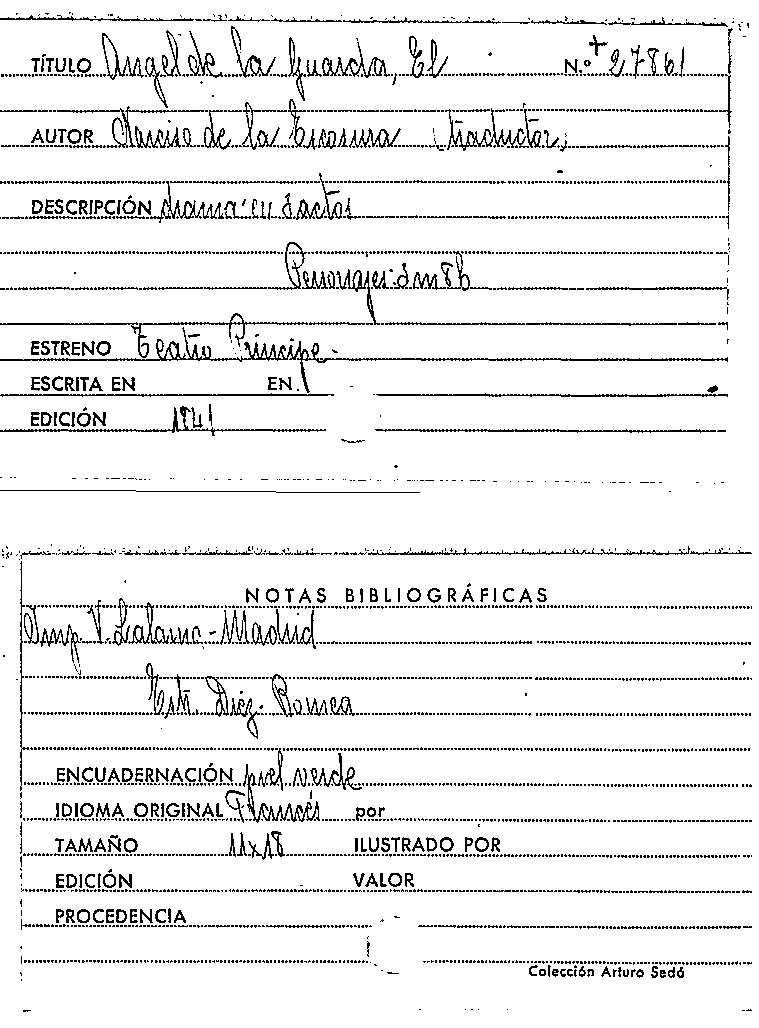 TÍTULO Angel de la Guarda, El N.º + 27861
AUTOR Narciso de la Escosura (traductor)
DESCRIPCIÓN drama en 3 actos
Personajes: 3 m 8 h
ESTRENO Teatro Principe -
ESCRITA EN EN
EDICIÓN 1841
NOTAS BIBLIOGRÁFICAS
Imp. V. Lalama - Madrid
Estr. Diez - Romea
ENCUADERNACIÓN piel verde
IDIOMA ORIGINAL Francés por
TAMAÑO 11x18 ILUSTRADO POR
EDICIÓN VALOR
PROCEDENCIA
Colección Arturo Sedó